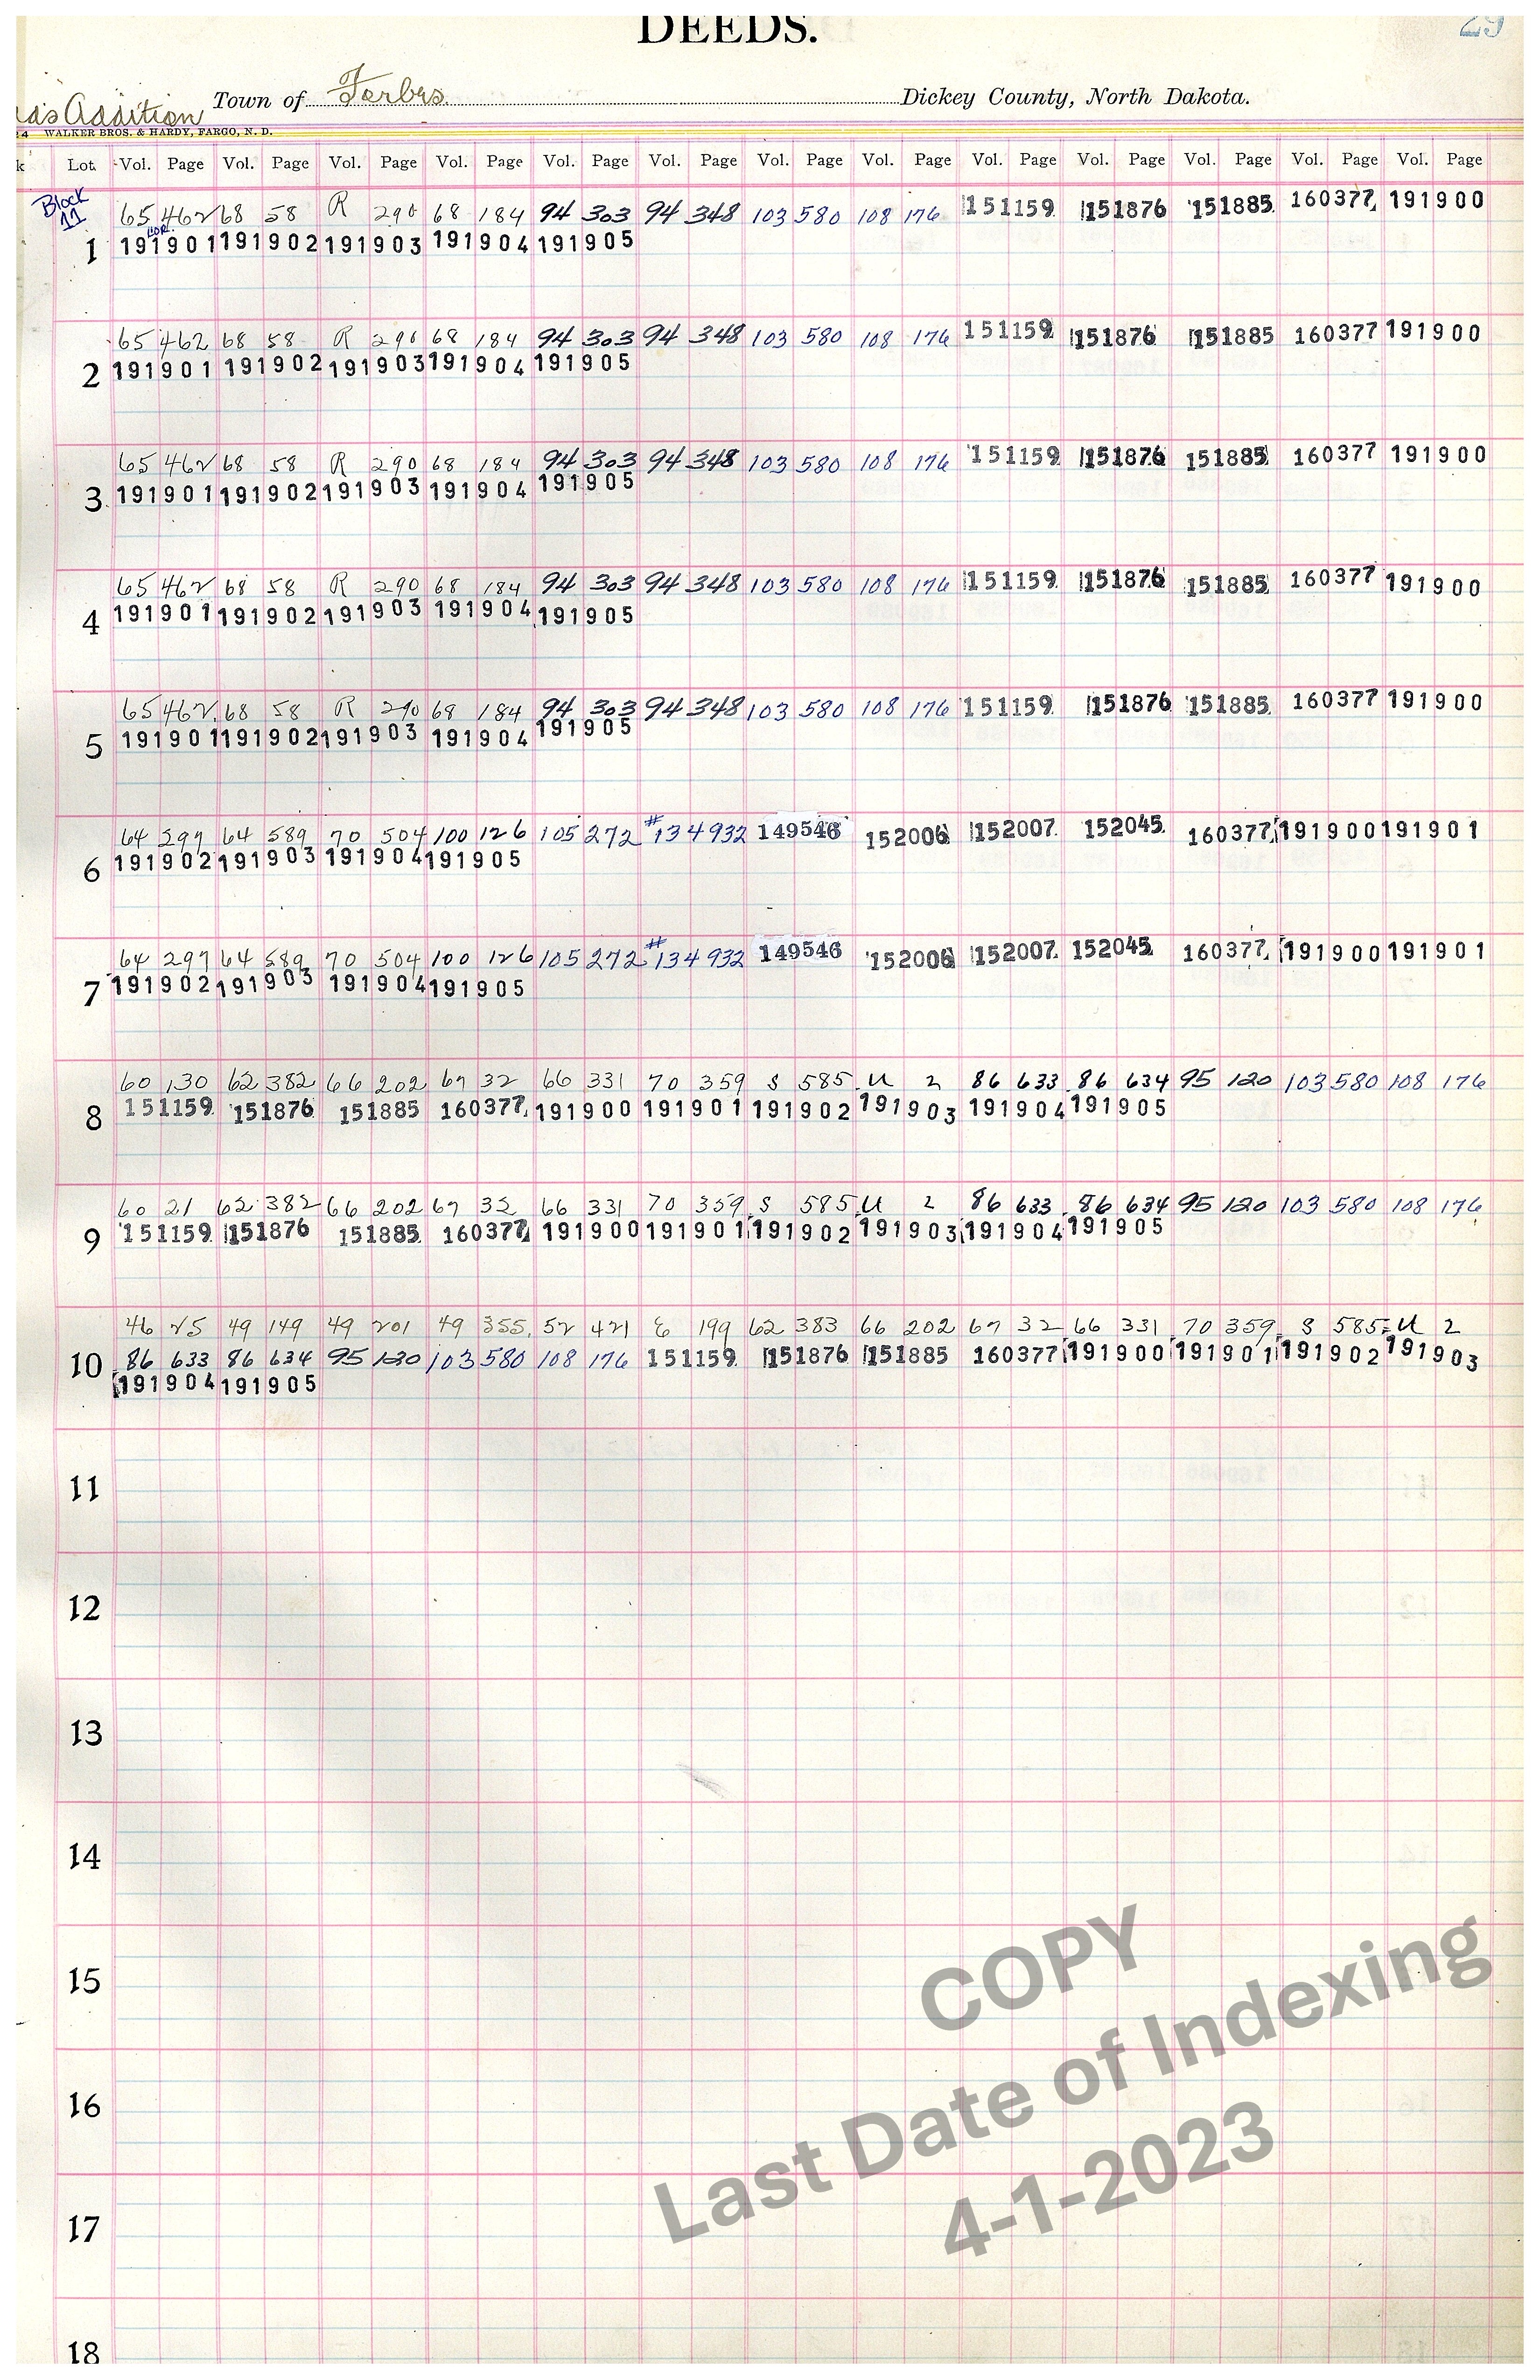 DEEDS. 29
Addition Town of Forbes Dickey County, North Dakota.
24 WALKER BROS. & HARDY, FARGO, N. D.
k Lot Vol. Page Vol. Page Vol. Page Vol. Page Vol. Page Vol. Page Vol. Page Vol. Page Vol. Page Vol. Page Vol. Page Vol. Page Vol. Page
Block 11
65 462 68 58 R 290 68 184 94 303 94 348 103 580 108 176 151159 151876 151885 160377 191900
1 191901 191902 191903 191904 191905
65 462 68 58 R 290 68 184 94 303 94 348 103 580 108 176 151159 151876 151885 160377 191900
2 191901 191902 191903 191904 191905
65 462 68 58 R 290 68 184 94 303 94 348 103 580 108 176 151159 151876 151885 160377 191900
3 191901 191902 191903 191904 191905
65 462 68 58 R 290 68 184 94 303 94 348 103 580 108 176 151159 151876 151885 160377 191900
4 191901 191902 191903 191904 191905
65 462 68 58 R 290 68 184 94 303 94 348 103 580 108 176 151159 151876 151885 160377 191900
5 191901 191902 191903 191904 191905
64 297 64 589 70 504 100 126 105 272 #134932 149546 152006 152007 152045 160377 191900 191901
6 191902 191903 191904 191905
64 297 64 589 70 504 100 126 105 272 #134932 149546 152006 152007 152045 160377 191900 191901
7 191902 191903 191904 191905
60 130 62 382 66 202 67 32 66 331 70 359 S 585 U 2 86 633 86 634 95 120 103 580 108 176
8 151159 151876 151885 160377 191900 191901 191902 191903 191904 191905
60 21 62 382 66 202 67 32 66 331 70 359 S 585 U 2 86 633 86 634 95 120 103 580 108 176
9 151159 151876 151885 160377 191900 191901 191902 191903 191904 191905
46 25 49 149 49 201 49 355 52 421 E 199 62 383 66 202 67 32 66 331 70 359 S 585 U 2
10 86 633 86 634 95 120 103 580 108 176 151159 151876 151885 160377 191900 191901 191902 191903
191904 191905
11
12
13
14
15
16
17
18
COPY
Last Date of Indexing
4-1-2023